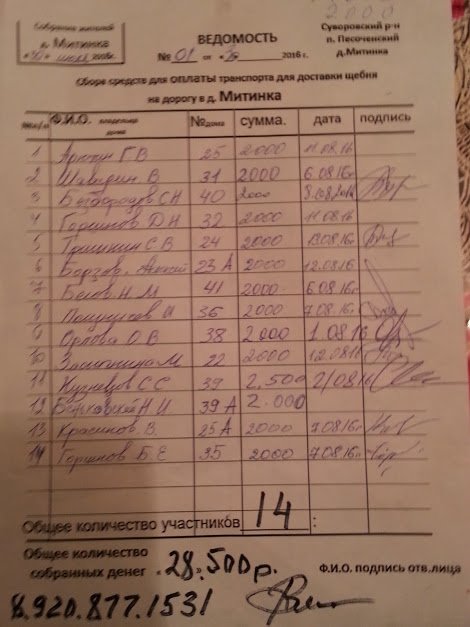 2000
Собрание жителей
д. Митинка
«30» июля 2016г.
ВЕДОМОСТЬ
№ 01 от « » 2016 г.
Суворовский р-н
п. Песоченский
д.Митинка
Сбора средств для оплаты транспорта для доставки щебня
на дорогу в д. Митинка
№п/п Ф.И.О. владельца дома №дома сумма. дата подпись
1 Г.В 25 2000 11.08.16
2 В. 31 2000 6.08.16г
3 С.Н 40 2000
4 Горшков Д.Н 32 2000 11.08.16
5 С.В 24 2000
6 23 А 2000 12.08.16
7 Белов Н.М 41 2000 6.08.16г
8 36 2000 7.08.16г
9 Орлова О.В 38 2000 1.08.16
10 М. 22 2000 12.08.16
11 Кузнецов С.С 39 2,500 2/08.16
12 Н.И 39 А 2.000
13 В. 25А 2000 7.08.16г
14 Горшков Б.Е 35 2000 7.08.16г
Общее количество участников 14 :
Общее количество
собранных денег «28.500р. Ф.И.О. подпись отв.лица
8.920.877.1531